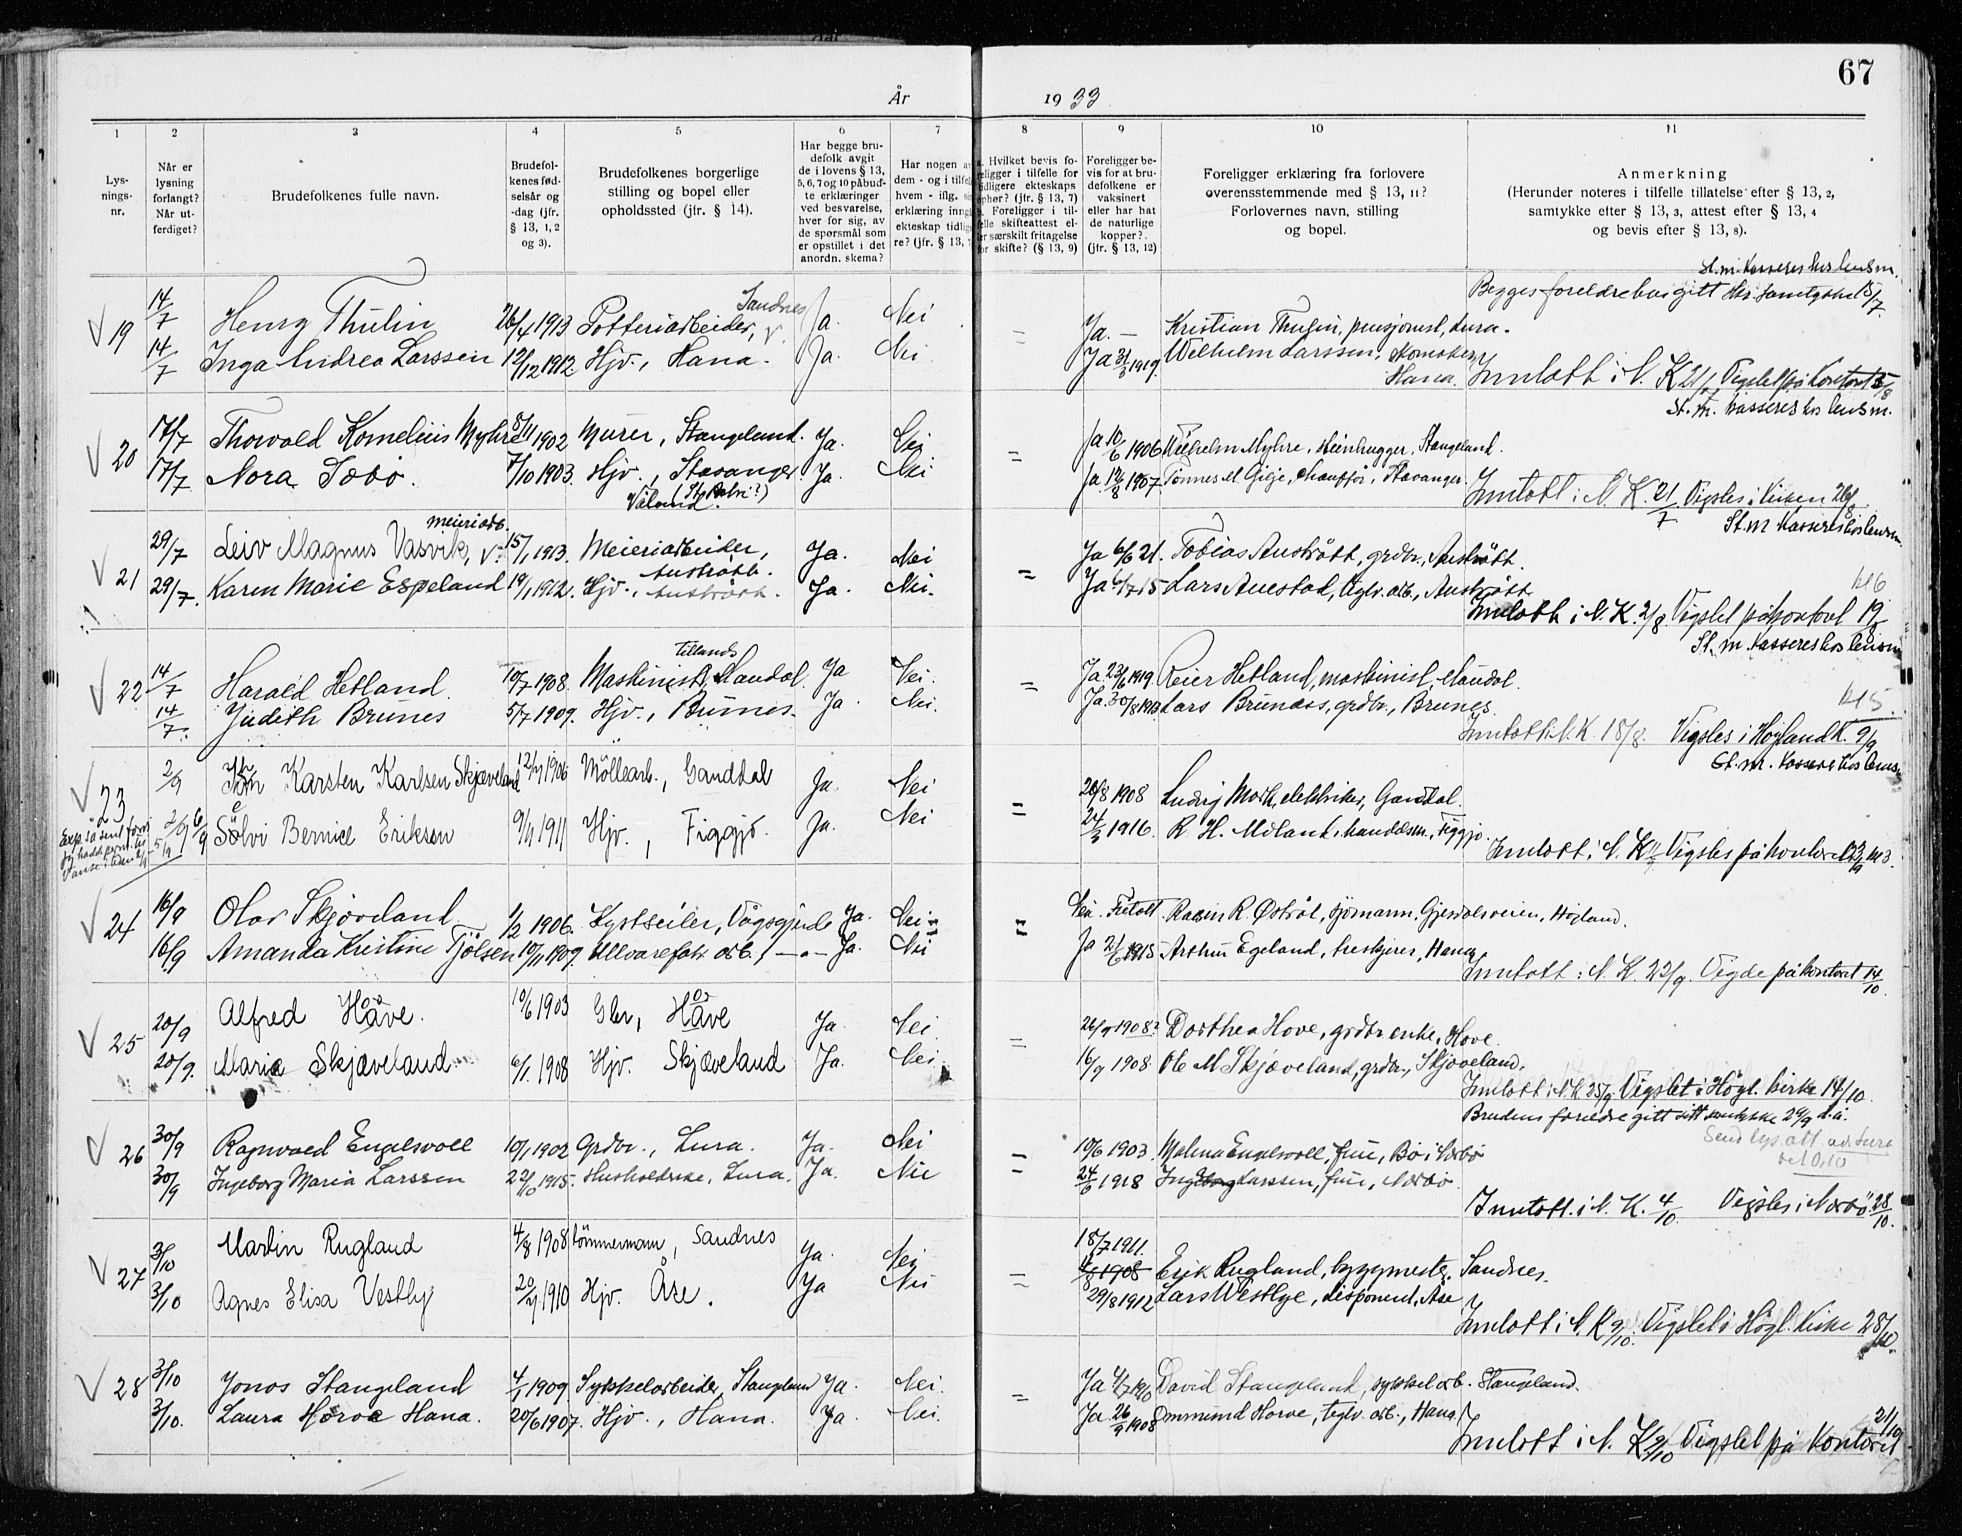 67
År 1933
1 2 3 4 5 6 7 8 9 10 11
Lys-
nings-
nr.
Når er
lysning
forlangt?
Når ut-
ferdiget?
Brudefolkenes fulle navn.
Brudefol-
kenes fød-
selsår og
-dag (jfr.
§ 13, 1, 2
og 3).
Brudefolkenes borgerlige
stilling og bopel eller
opholdssted (jfr. § 14).
Har begge bru-
defolk avgit
de i lovens § 13,
5, 6, 7 og 10 påbud-
te erklæringer
ved besvarelse,
hver for sig, av
de spørsmål som
er opstillet i det
anordn. skema?
Har nogen a
dem - og i tilfel
hvem - iflg. s
erklæring inng
ekteskap tidlig
re? (jfr. § 13, 7
Hvilket bevis fo-
religger i tilfelle for
tidligere ekteskaps
ophør? (§ 13, 7)
Foreligger i til-
felle skifteattest el-
er særskilt fritagelse
for skifte? (§ 13, 9)
Foreligger be-
vis for at bru-
defolkene er
vaksinert
eller har hat
de naturlige
kopper?.
(jfr. § 13, 12)
Foreligger erklæring fra forlovere
overensstemmende med § 13, 11?
Forlovernes navn, stilling
og bopel.
Anmerkning
(Herunder noteres i tilfelle tillatelse efter § 13, 2,
samtykke efter § 13, 3, attest efter § 13, 4
og bevis efter § 13, 8).
St.m. kasseres hos lensm.
Begges foreldre har gitt sitt samtykke 15/7
Sandnes
19 14/7 Henry Thulin 26/4 1913 Potteriarbeider, Ja. Nei Ja. — Kristian Thulin, pensjonist, Lura.
14/7 Inga Andrea Larssen 12/12 1912 Hjv., Hana. Ja. Nei Ja 31/5 1919. Wilhelm Larssen, skomaker,
Hana. Innlatt i N. K 21/7 Vigslet på kontoret 5/8
St. m. kasseres hos lensm.
20 17/7 Thorvald Kornelius Myhre 5/11 1902 Murer, Stangeland. Ja. Nei Ja 10/6 1906 Wilhelm Myhre, steinhugger, Stangeland.
17/7 Nora Sæbø. 7/10 1903. Hjv., Stavanger. Ja. Nei Ja 12/8 1907. Tønnes M Gilje, chauffør, Stavanger.
(St. Petri?)
Våland. Innlatt i N. K. 21/7 Vigsles i kirken 26/8
St. m kasseres hos lensm.
meieriarb.
21 29/7 Leiv Magnus Vasvik, 15/1 1913. Meieriarbeider, Ja. Nei Ja 6/6 21. Tobias Austrått, grdbr., Austrått.
Austrått.
29/7. Karen Marie Espeland 19/1 1912. Hjv., Austrått. Ja. Nei. Ja 6/7 15 Lars Auestad, teglv. arb., Austrått
Innlatt i N. K. 2/8. Vigslet på kontoret 19/8
St. m. kasseres hos lensm
Tillands
22 14/7 Harald Hetland. 10/7 1908. Maskinist, Mandal. Ja Nei. Ja 23/6 1919. Reier Hetland, maskinist, Mandal.
14/7. Judith Brunes 5/7 1909. Hjv., Brunes. Ja. Nei. Ja 30/8 Lars Brunes, grdbr., Brunes.
Innlatt i N. K. 18/8. Vigsles i Højland K. 9/9
St. m. kasseres hos lensm
23 2/9 Karsten Karlsen Skjæveland 12/7 1906 Möllearb., Gandtal Ja. Nei 20/8 1908 Ludvig Mork, elektriker, Gandtal.
2/9 6/9 Sølvi Bernice Eriksen 9/11 1911 Hjv., Figgjo. Ja. Nei 24/3 1916. R. H. Mæland, handelsm., Figgjo.
Innlatt i N. K Vigsles på kontoret
24 16/9 Olav Skjæveland 1/2 1906. Kystseiler, Vågsgjerde Ja. Nei Nei. Fritatt. Rasin R. Østråt, sjømann, Gjesdalsveien, Højland.
16/9 Amanda Kristine Tjölsen 10/11 1909. Ullvarefabr. arb., —"— Ja. Nei Ja 2/6 1915 Arthur Egeland, treskjærer, Hana
Innlatt i N. K. 22/9. Vigde på kontoret 14/10
25 20/9 Alfred Håve. 10/6 1903 Gbr., Håve Ja. Nei 26/9 1908? Dorthea Hove, grdbr enke, Hove.
20/9. Maria Skjæveland 6/1. 1908 Hjv. Skjæveland Ja. Nei 16/9 1908 Ole M Skjæveland, grdbr., Skjæveland.
Innlatt i N. K 25/9. Vigslet i Högl. kirke 14/10.
Brudens foreldre gitt sitt samtykke 29/9 d. å.
26 30/9 Ragnvald Engelsvoll 10/1 1902 Grdbr., Lura. Ja. Nei 10/6 1903. Malena Engelsvoll, frue, Bö i Nærbö
30/9 Ingeborg Maria Larssen 22/10 1915. Husholderske, Lura. Ja. Nei 24/6 1918 Larssen, frue, Nærbö.
Innlatt. i N. K. 4/10. Vigsles i Nærbö 28/10.
27 3/10 Martin Rugland 4/8 1908 tömmermann, Sandnes Ja. Nei 18/7 1911. 4/8 1908 Erik Rugland, byggmester, Sandnes.
3/10 Agnes Elisa Vestly 20/4 1910 Hjv. Åse. Ja Nei 29/8 1912 Lars Westlye, disponent, Ase
Innlatt i N. K 9/10. Vigslet i Högl. Kirke 28/10.
28 3/10 Jonas Stangeland 4/1 1909 Sykkelarbeider, Stangeland Ja. Nei. Ja 4/7 1910 David Stangeland, sykkelarb. Stangeland.
3/10. Laura Horve Hana. 20/6 1907. Hjv., Hana. Ja. Nei. Ja 26/9 1908 Ommund Horve, teglv. arb., Hana.
Innlatt i N. K 9/10 Vigslet på kontoret 21/10